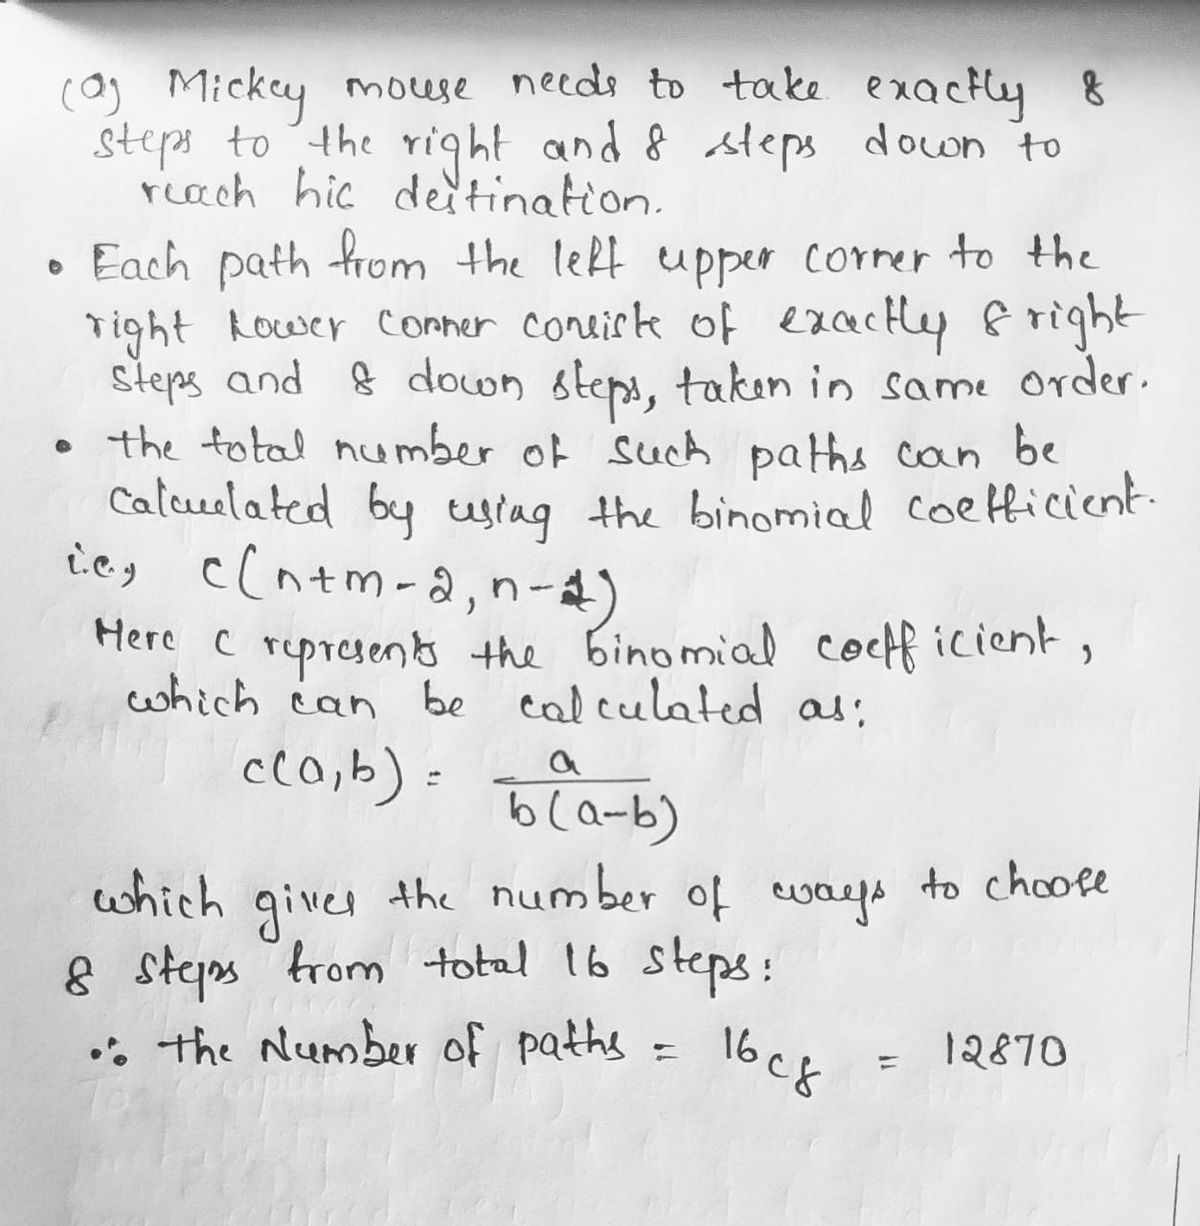 (a) Mickey mouse needs to take exactly 8
steps to the right and 8 steps down to
reach hic destination.
• Each path from the left upper corner to the
right lower conner consists of exactly 8 right
steps and 8 down steps, taken in same order.
• the total number of such paths can be
calculated by using the binomial coefficient.
i.e, c(n+m-2, n-1)
Here c represents the binomial coefficient,
which can be calculated as:
c(a,b) = a / b(a-b)
which gives the number of ways to choose
8 steps from total 16 steps:
∴ the Number of paths = 16c8 = 12870